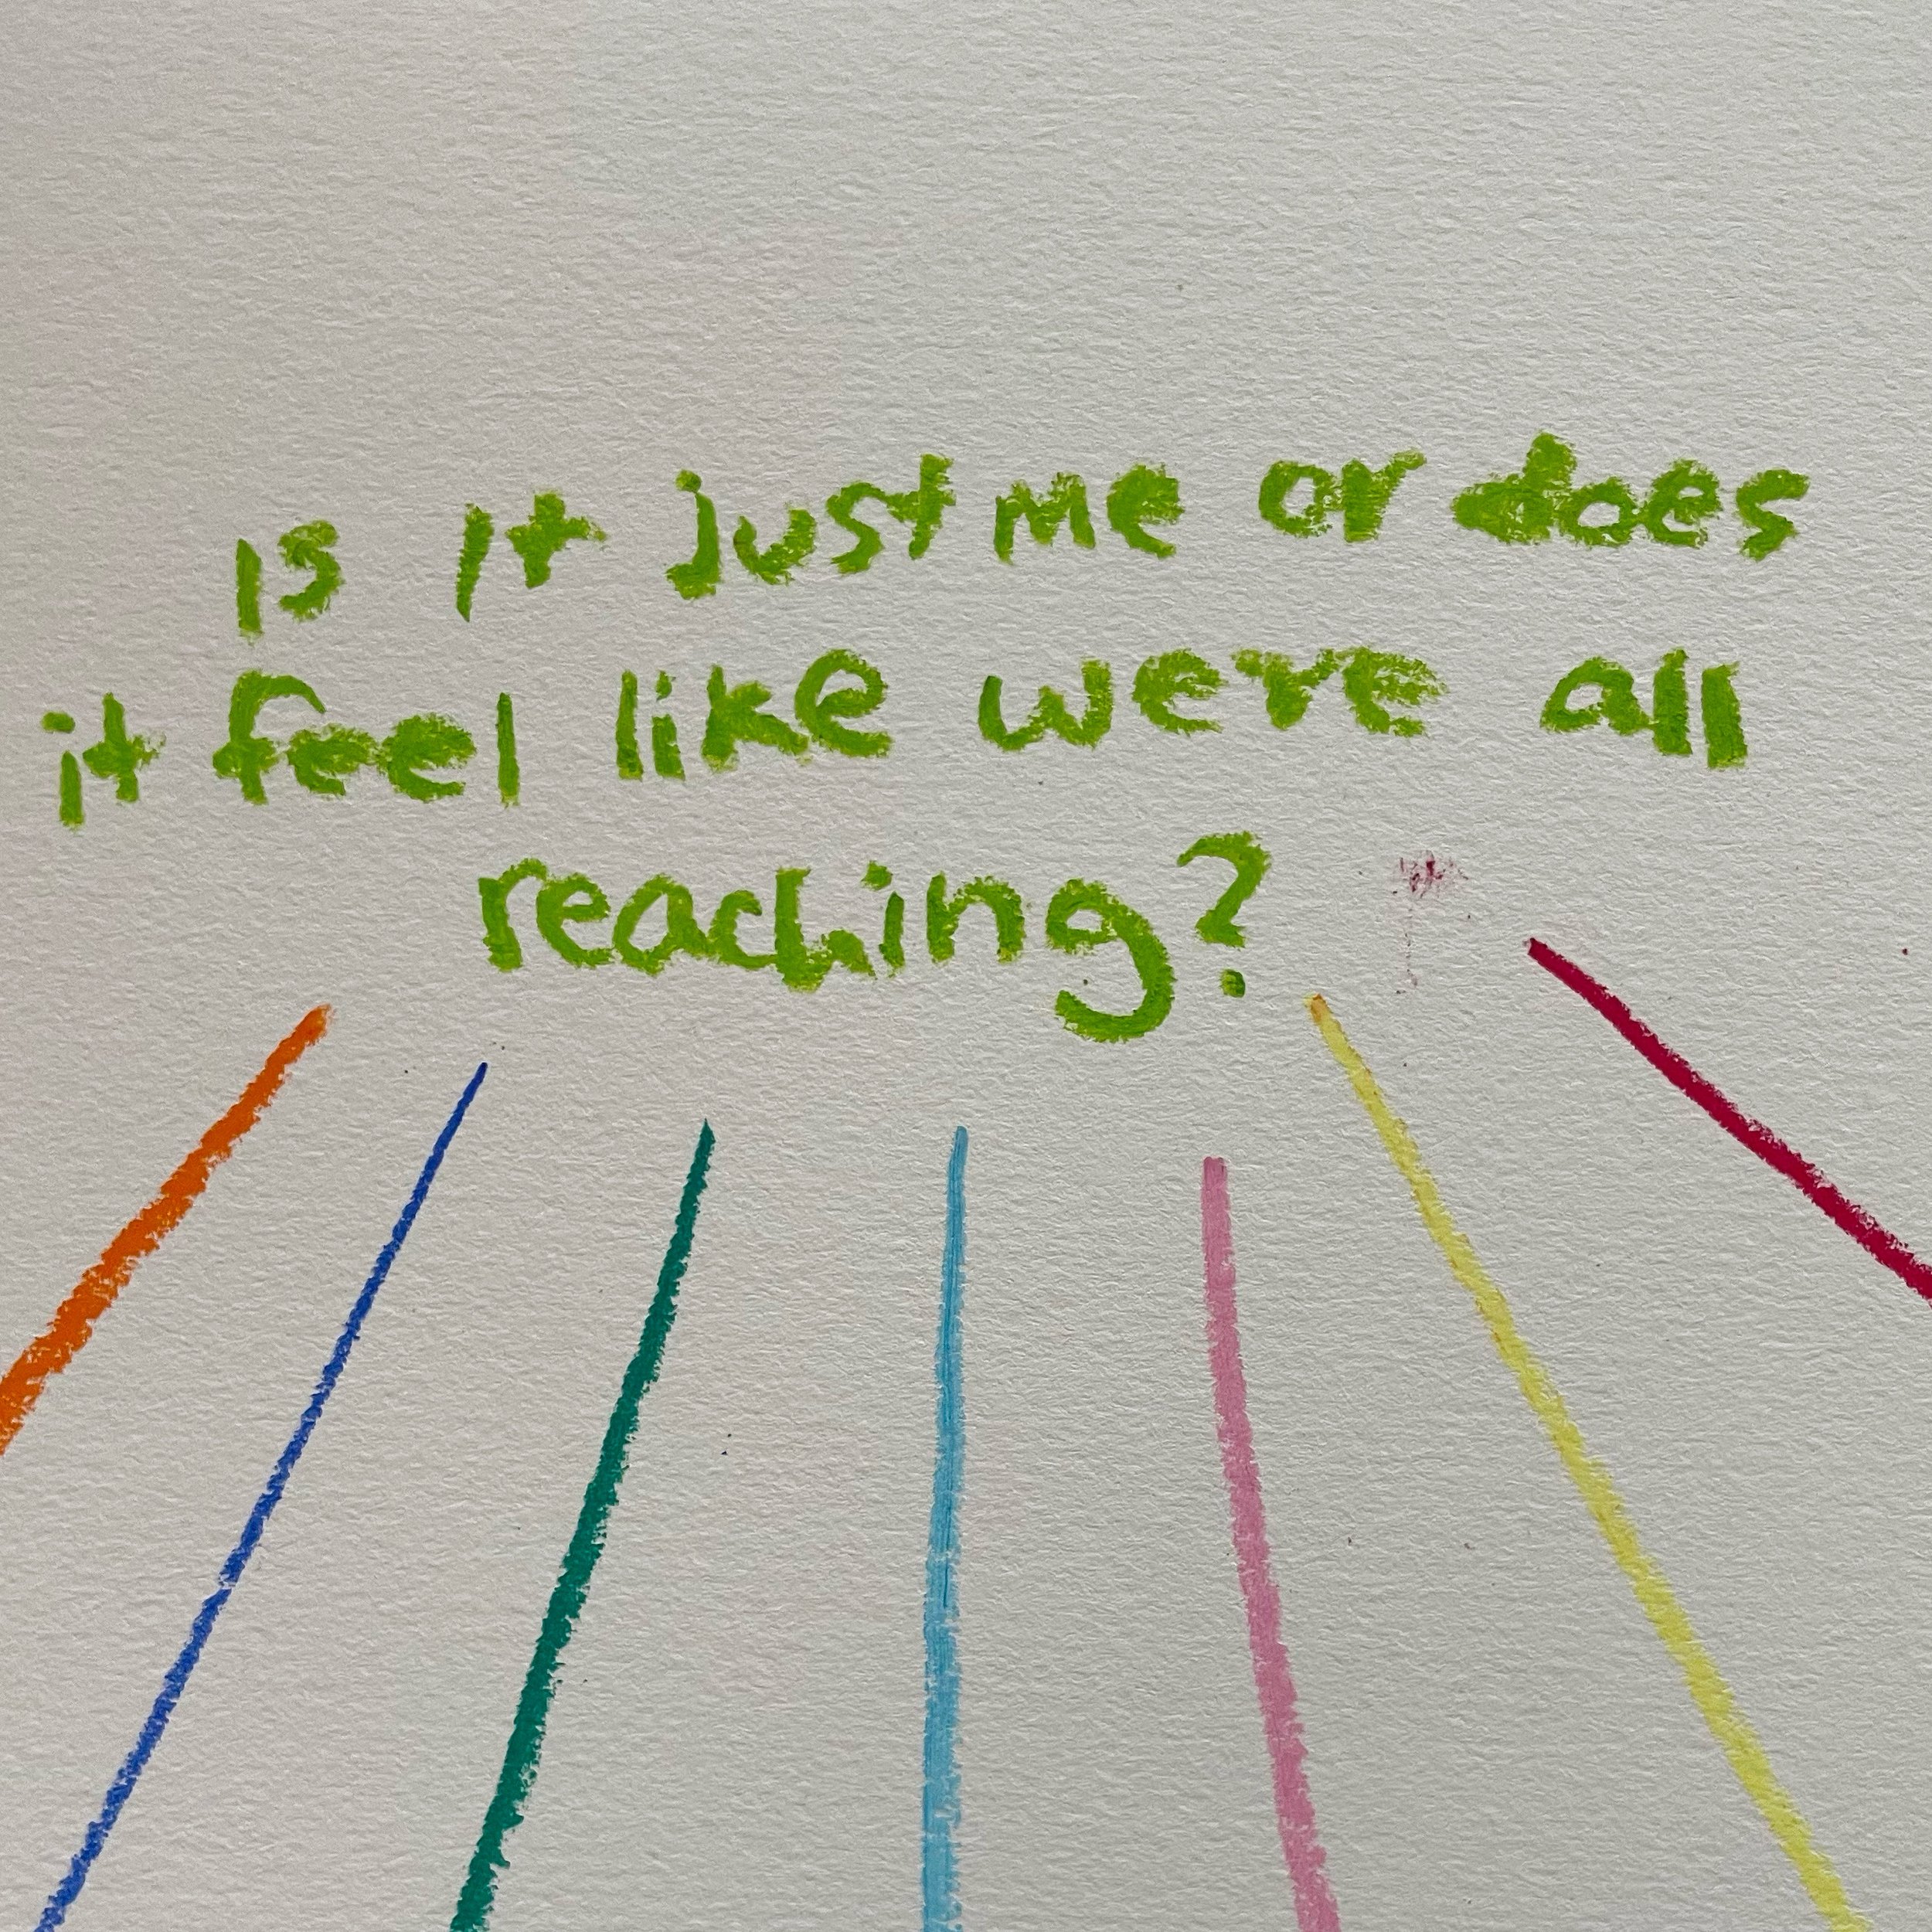 is it just me or does
it feel like we're all
reaching?